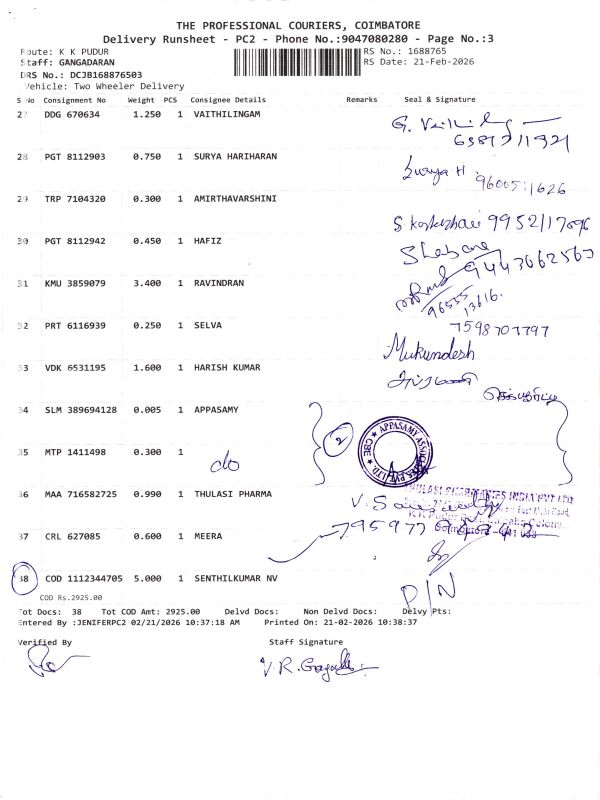 THE PROFESSIONAL COURIERS, COIMBATORE
Delivery Runsheet - PC2 - Phone No.:9047080280 - Page No.:3
Route: K K PUDUR
RS No.: 1688765
Staff: GANGADARAN
RS Date: 21-Feb-2026
DRS No.: DCJB168876503
Vehicle: Two Wheeler Delivery
S No Consignment No Weight PCS Consignee Details Remarks Seal & Signature
27 DDG 670634 1.250 1 VAITHILINGAM
28 PGT 8112903 0.750 1 SURYA HARIHARAN
Surya H
29 TRP 7104320 0.300 1 AMIRTHAVARSHINI
30 PGT 8112942 0.450 1 HAFIZ
9443062563
31 KMU 3859079 3.400 1 RAVINDRAN
96555
13616.
32 PRT 6116939 0.250 1 SELVA
7598707797
Mukundesh
33 VDK 6531195 1.600 1 HARISH KUMAR
34 SLM 389694128 0.005 1 APPASAMY
2
35 MTP 1411498 0.300 1
do
36 MAA 716582725 0.990 1 THULASI PHARMA
37 CRL 627085 0.600 1 MEERA
38 COD 1112344705 5.000 1 SENTHILKUMAR NV
D/N
COD Rs.2925.00
Tot Docs: 38 Tot COD Amt: 2925.00 Delvd Docs: Non Delvd Docs: Delvy Pts:
Entered By :JENIFERPC2 02/21/2026 10:37:18 AM Printed On: 21-02-2026 10:38:37
Verified By Staff Signature